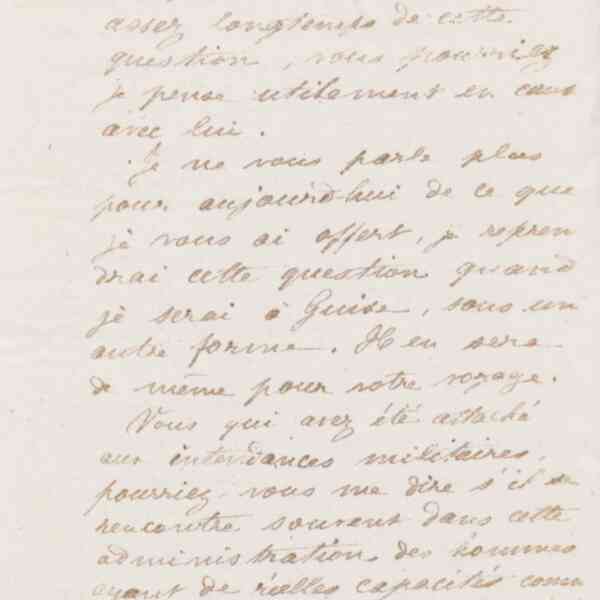 assez longtemps de cette
question, vous pourriez
je pense utilement en caus
avec lui.
Je ne vous parle plus
pour aujourd'hui de ce que
je vous ai offert, je repren
drai cette question quand
je serai à Guise, sous un
autre forme. Il en sera
de même pour votre voyage.
Vous qui avez été attaché
aux intendances militaires,
pourriez-vous me dire s'il se
rencontre souvent dans cette
administration des hommes
ayant de réelles capacités comm